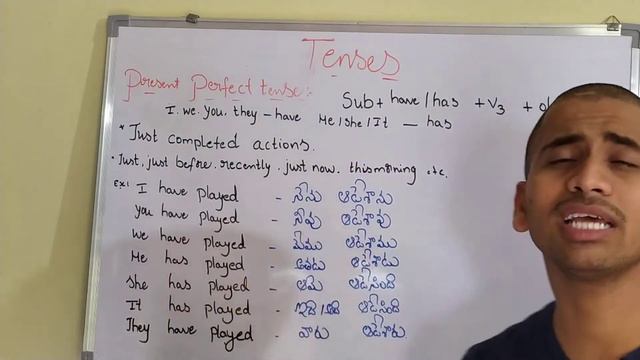 Tenses
Present Perfect tense :-
Sub + have / has + V3 + ob
I. we. you. they – have He / she / It – has
* Just completed actions.
• Just, just before. recently. just now. this morining etc.
Ex: I have played - నేను ఆడేశాను
you have played - నీవు ఆడేశావు
we have played - మేము ఆడేశాము
He has played - అతడు ఆడేశాడు
She has played - ఆమె ఆడేసింది
It has played - ఇది / అది ఆడేసింది
They have played - వారు ఆడేశారు.